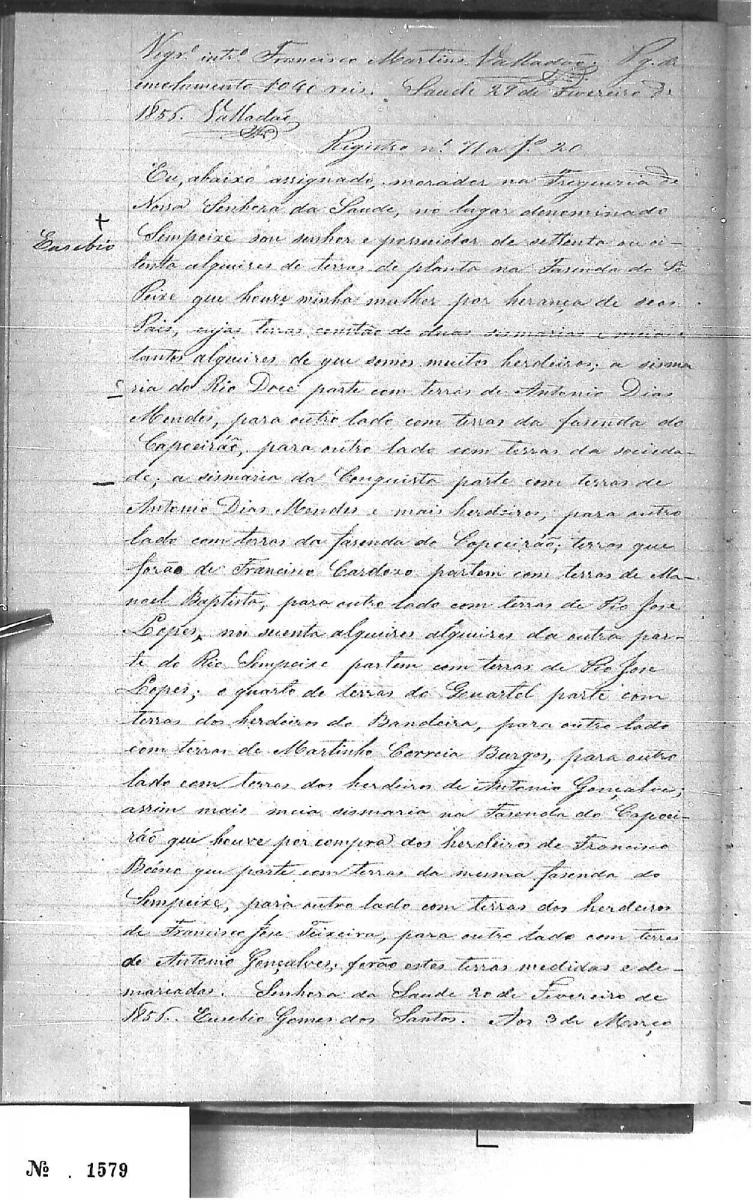 Vigr.º intr.º Francisco Martins Valladão. Pg. de
emolumento 1040 reis. Saude 29 de Fevereiro de
1856. Valladão
Rigistro n.º 71 a f.º 20
Eu, abaixo assignado, morador na Freguezia de
Nossa Senhora da Saude, no lugar denominado
+
Eusebio
Sempeixe sou senhor e possuidor de settenta ou oi-
tenta alqueires de terras de planta na Fasenda do Sē
Peixe que houve minha mulher por herança de seos
Pais, cujas terras constão de duas sismarias e meia e
tantos alqueires de que somos muitos herdeiros; a sisma
ria do Rio Doce parte com terras de Antonio Dias
Mendes, para outro lado com terras da fasenda do
Capoeirão, para outro lado com terras da socieda-
de; a sismaria da Conquista parte com terras de
Antonio Dias Mendes e mais herdeiros, para outro
lado com terras da fasenda do Capoeirão; terras que
forão de Francisco Cardozo partem com terras de Ma-
noel Baptista, para outro lado com terras de Pio José
Lopes, no suenta alqueires alqueires da outra par-
te do Rio Sempeixe partem com terras de Pio José
Lopes; o quarto de terras do Guartel parte com
terras dos herdeiros do Bandeira, para outro lado
com terras de Martinho Correia Burgos, para outro
lado com terras dos herdeiros de Antonio Gonçalves;
assim mais meia sismaria na Fasenda do Capoei-
rão que houve por compra dos herdeiros de Francisco
Bueno que parte com terras da mesma fasenda do
Sempeixe, para outro lado com terras dos herdeiros
de Francisco José Teixeira, para outro lado com terras
de Antonio Gonçalves; forão estas terras medidas e de-
marcadas. Senhora da Saude 20 de Fevereiro de
1856. Eusebio Gomes dos Santos. Aos 3 de Março
№ . 1579